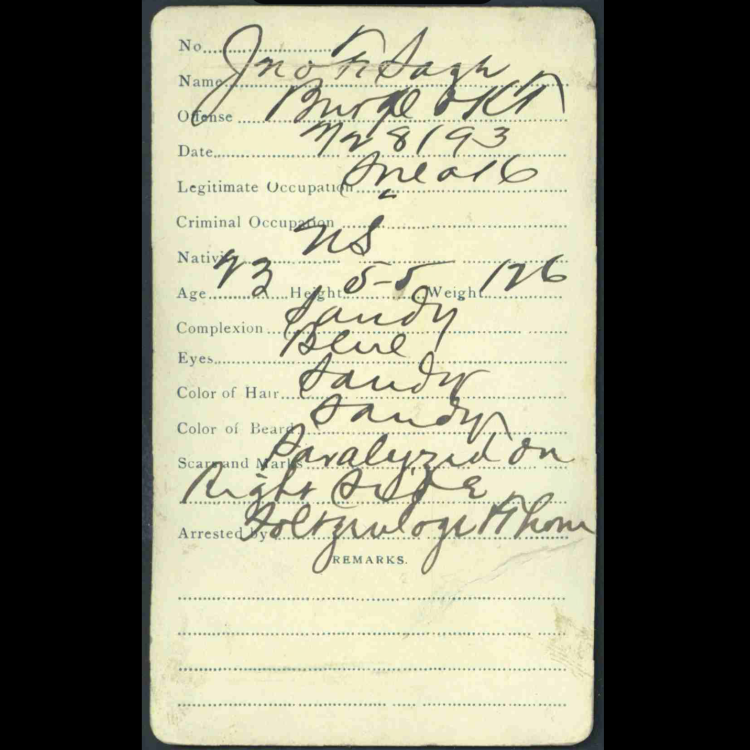 No.
Name Jno
Offense Burg & KT
Date 7/28/93
Legitimate Occupation
Criminal Occupation "
Nativity US
Age 23 Height 5-5 Weight 126
Complexion Sandy
Eyes Blue
Color of Hair Sandy
Color of Beard Sandy
Scars and Marks Paralyzed on
Right Side
Arrested by
REMARKS.